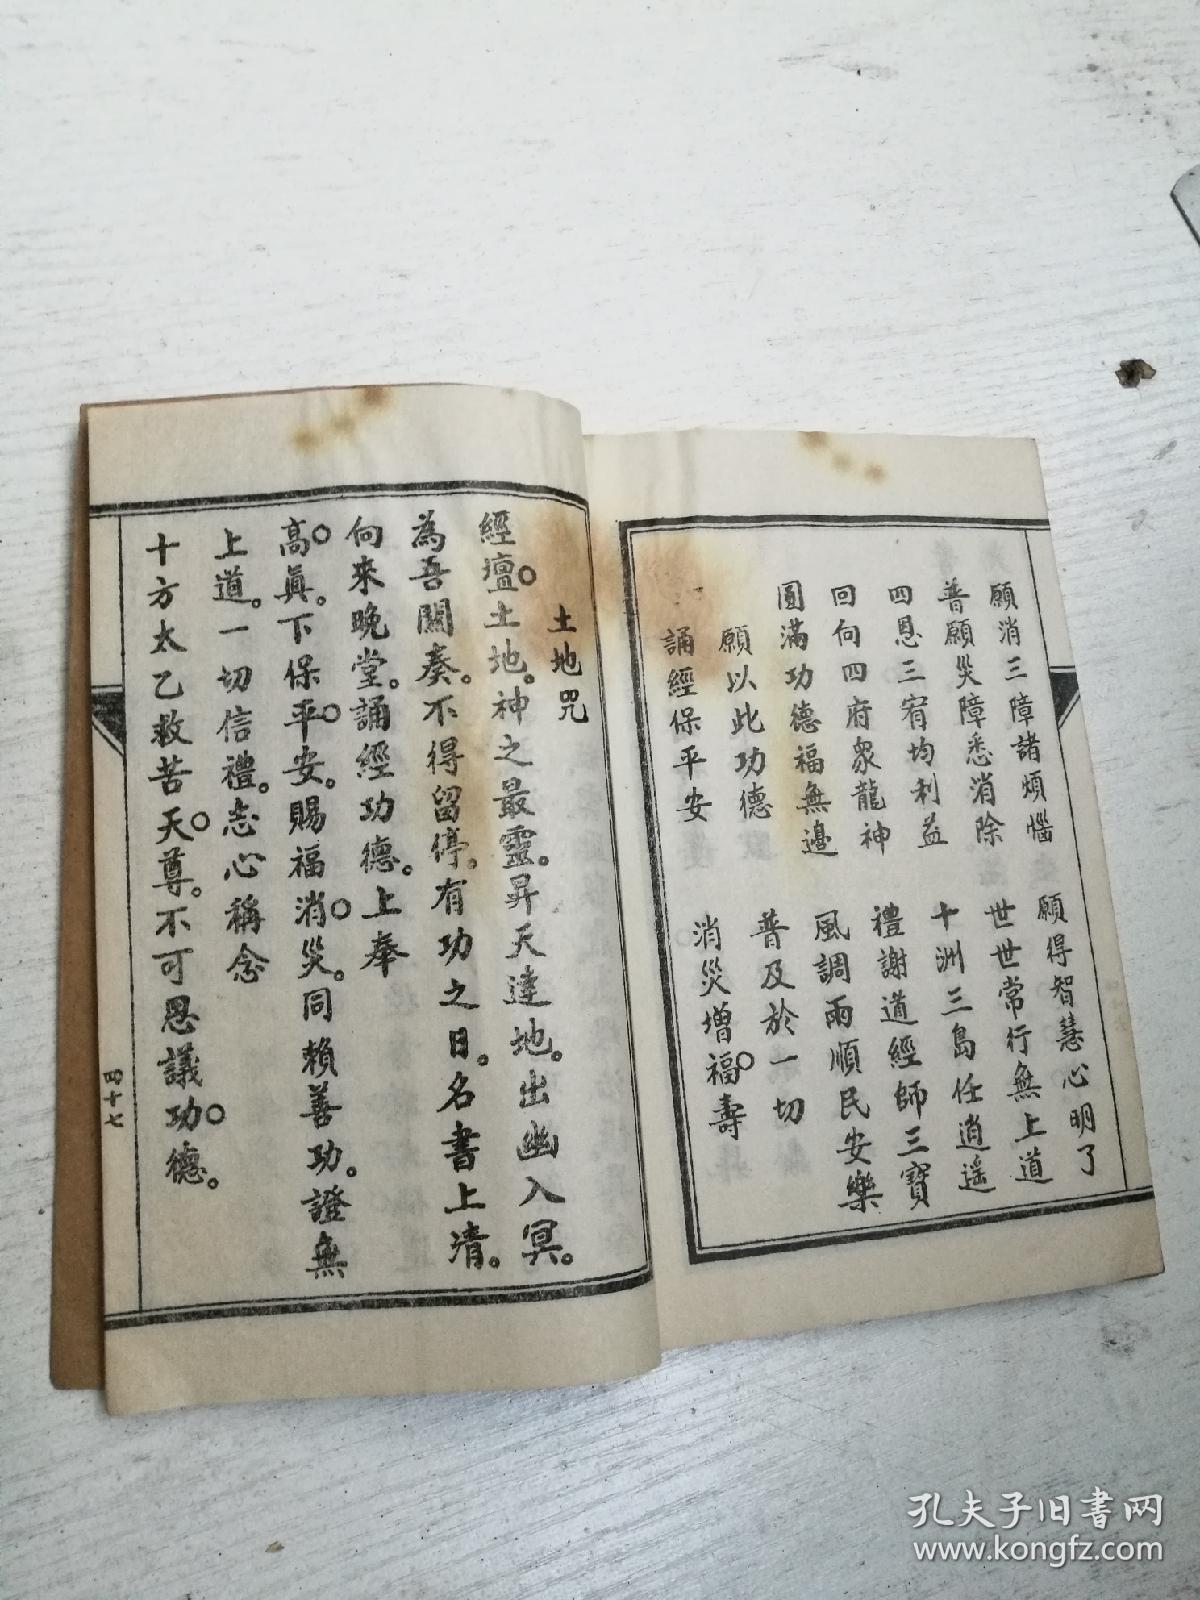 願消三障諸煩惱 願得智慧心明了
普願災障悉消除 世世常行無上道
四恩三宥均利益 十洲三島任逍遥
回向四府衆龍神 禮謝道經師三寶
圓滿功德福無邊 風調雨順民安樂
願以此功德 普及於一切
誦經保平安 消災增福壽
土地咒
經壇土地。神之最靈。昇天達地。出幽入冥。
為吾關奏。不得留停。有功之日。名書上清。
向來晚堂。誦經功德。上奉
高眞。下保平安。賜福消災。同賴善功。證無
上道。一切信禮。志心稱念
十方太乙救苦天尊。不可思議功德。
四十七
孔夫子旧书网
www.kongfz.com